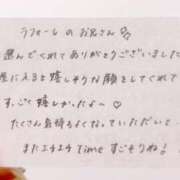 ラフォーレのお兄さん
選んでくれてありがとうございました
に入ると嬉しそうな顔をしてくれて
すっごく嬉しかったよ〜♡
たくさん気持ちよくなっていただいて
またイチャイチャTimeすごそうね!